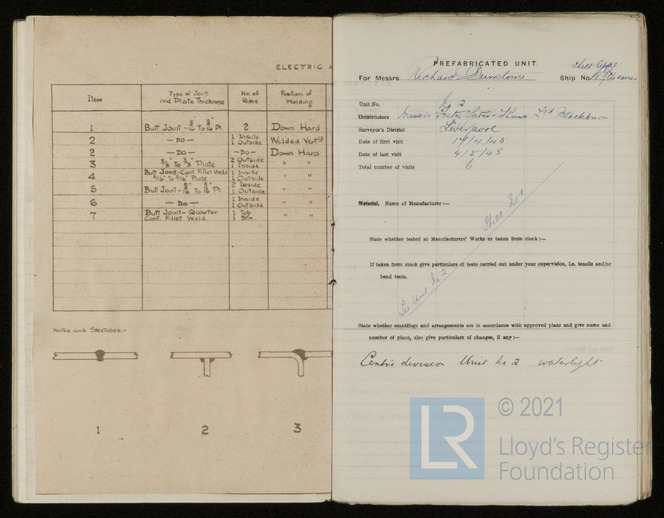 ELECTRIC
Item
Type of Joint and Plate Thickness
No. of Runs
Position of Welding
1 Butt Joint - 5/16" to 5/16" Pl. 2 Down Hard
2 — Do — 1 Inside 1 Outside Welded Vert
2 — Do — — Do — Down Hard
3 Plate 2 Outside 1 Inside " "
4 Butt Joint - Cont. Fillet Weld Plate 1 Inside 1 Outside " "
5 Butt Joint Pl. 2 Inside 1 Outside " "
6 — Do — 1 Inside 1 Outside " "
7 Butt Joint - Quarter Cont. Fillet Weld. 1 Top 1 Btm. " "
Notes and Sketches:-
1 2 3
PREFABRICATED UNIT.
For Messrs. Richard Dunstons Ship No.
Unit No. No 2
Constructors Foster Yates & Thom Ltd Blackburn
Surveyor's District Liverpool
Date of first visit 19/4/45
Date of last visit 4/5/45
Total number of visits 6
Material. Name of Manufacturer:—
State whether tested at Manufacturers' Works or taken from stock:—
If taken from stock give particulars of tests carried out under your supervision, i.e. tensile and/or
bend tests.
See Unit No 2
State whether scantlings and arrangements are in accordance with approved plans and give name and
number of plans, also give particulars of changes, if any:—
Centre division Unit No 2 watertight
LR
© 2021
Lloyd's Register
Foundation